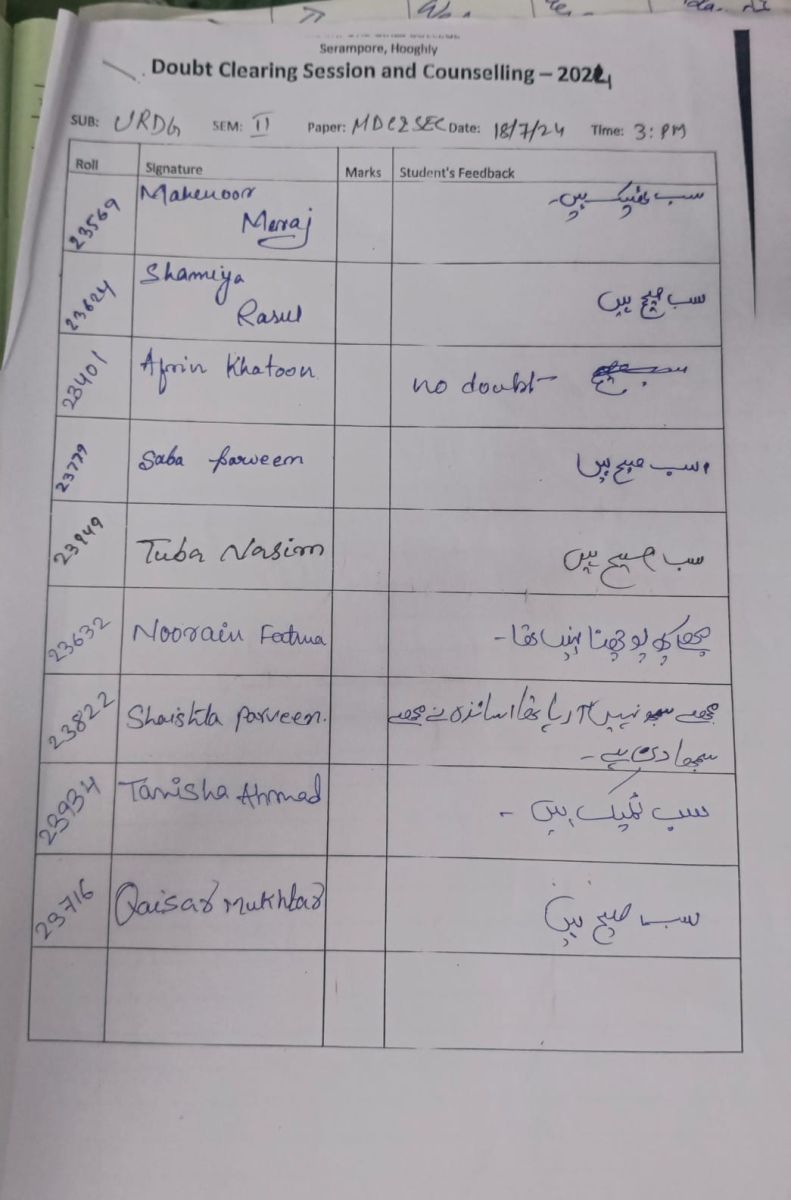 Serampore, Hooghly
Doubt Clearing Session and Counselling – 2024
SUB: URDG SEM: II Paper: MDC2SEC Date: 18/7/24 Time: 3: PM
Roll Signature Marks Student's Feedback
23569 Mahenoor Merraj سب ٹھیک ہیں۔
23624 Shamiya Rasul سب صحیح ہیں
23401 Afrin Khatoon no doubt
23779 Saba parween سب صحیح ہیں
23949 Tuba Nasim سب صحیح ہیں
23632 Noorain Fatma مجھے کچھ پوچھنا نہیں تھا۔
23822 Shaishta parveen. مجھے سمجھ نہیں آرہا تھا اساتذہ نے مجھے
سمجھا دی ہے۔
23934 Tanisha Ahmad سب ٹھیک ہیں۔
23716 Qaisar Mukhtar سب صحیح ہیں